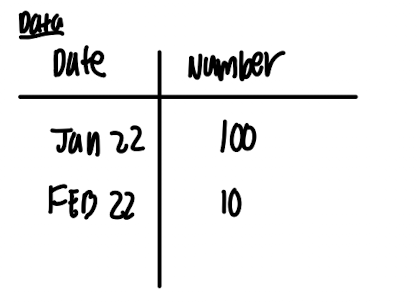 Data
Date Number
Jan 22 100
FEB 22 10